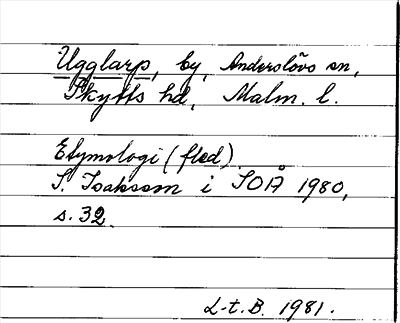 Ugglarp, by, Anderslövs sn,
Skytts hd, Malm. l.
Etymologi (fled)
S. Isaksson i SOÅ 1980,
s. 32.
L-t. B. 1981.